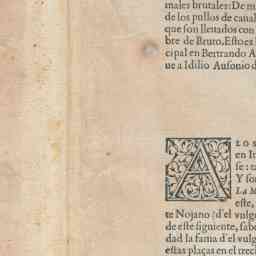 males brutales: De m
de los pullos de caual
que son lleuados con
bre de Bruto. Esto es
cipal en Bertrando A
ue a Idilio Ausonio d
A LOS
en It
se: t
Y so
La M
este,
te Nojano (d'el vulg
de este siguiente, sab
dad la fama d'el vul
estas plaças en el trec